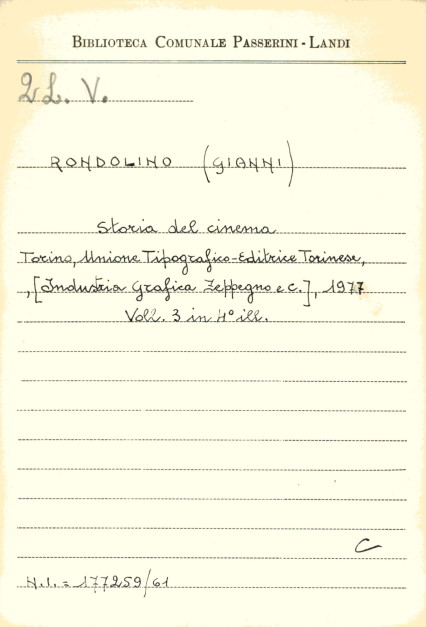 BIBLIOTECA COMUNALE PASSERINI - LANDI
2 L. V.
RONDOLINO (GIANNI)
Storia del cinema
Torino, Unione Tipografico-Editrice Torinese,
, [Industria Grafica Zeppegno e C.], 1977
Voll. 3 in 4° ill.
C
N.I. = 177259/61